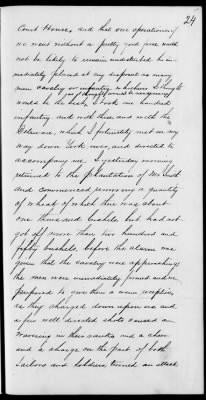 24
Court House, and that our operations if
we went without a pretty good force would
not be likely to remain undisturbed he im-
mediately placed at my disposal as many
men cavalry or infantry, whichever I thought
would be the best, I took one hundred
infantry and with them and with the
which I fortunately met on my
way down York river, and directed to
accompany me, I yesterday morning
returned to the plantation of
and commenced removing a quantity
of wheat of which there was about
one thousand bushels, but had not
got off more than two hundred and
fifty bushels, before the alarm was
given that the cavalry were approaching
the men were immediately formed and
prepared to give them a warm reception,
as they charged down upon us and
a few well directed shots caused a
wavering in their ranks and a cheer
and a charge on the part of both
sailors and soldiers, turned an attack